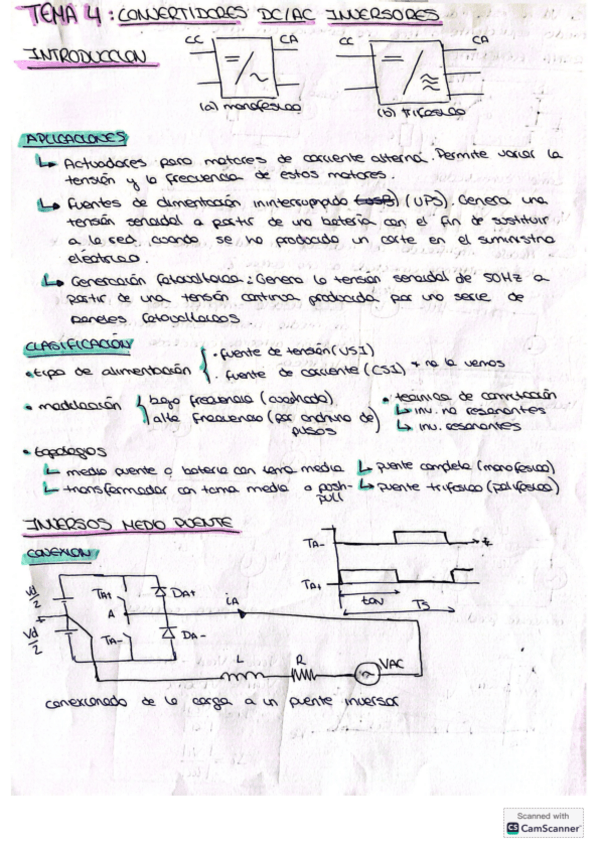 TEMA 4: CONVERTIDORES DC/AC INVERSORES
INTRODUCCION
CC CA CC CA
(a) monofásico (b) trifásico
APLICACIONES
Actuadores para motores de corriente alterna. Permite variar la
tensión y la frecuencia de estos motores.
Fuentes de alimentación ininterrumpida (UPS). Genera una
tensión senoidal a partir de una batería con el fin de sustituir
a la red, cuando se ha producido un corte en el suministro
eléctrico.
Generación fotovoltaica: Genera la tensión senoidal de 50Hz a
partir de una tensión continua producida por una serie de
paneles fotovoltaicos
CLASIFICACIÓN
• tipo de alimentación
• fuente de tensión (VSI)
• fuente de corriente (CSI) * no la vemos
• modulación
baja frecuencia (cuadrada)
alta frecuencia (por anchura de
pulsos)
• técnica de conmutación
inv. no resonantes
inv. resonantes
• topologías
medio puente o batería con toma media
puente completo (monofásico)
transformador con toma media o push-
pull
puente trifásico (polifásico)
INVERSOS MEDIO PUENTE
CONEXION
TA-
t
TA+
ton
TS
Vd/2
Vd/2
TA+
A
TA-
DA+
DA-
iA
L
R
VAC
conexionado de la carga a un puente inversor
Scanned with
CS CamScanner